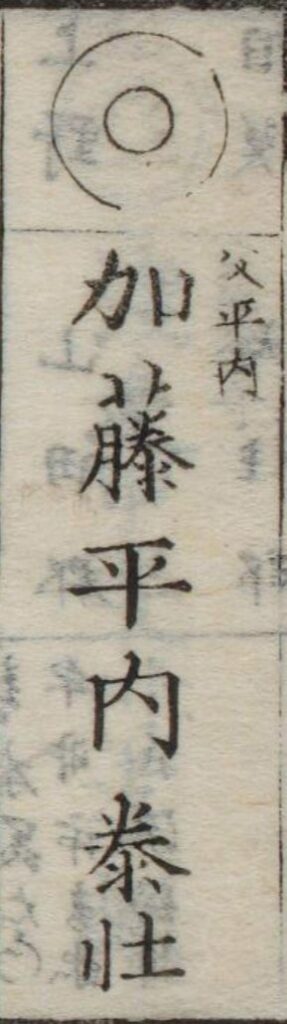 父平内
加藤平内泰壮